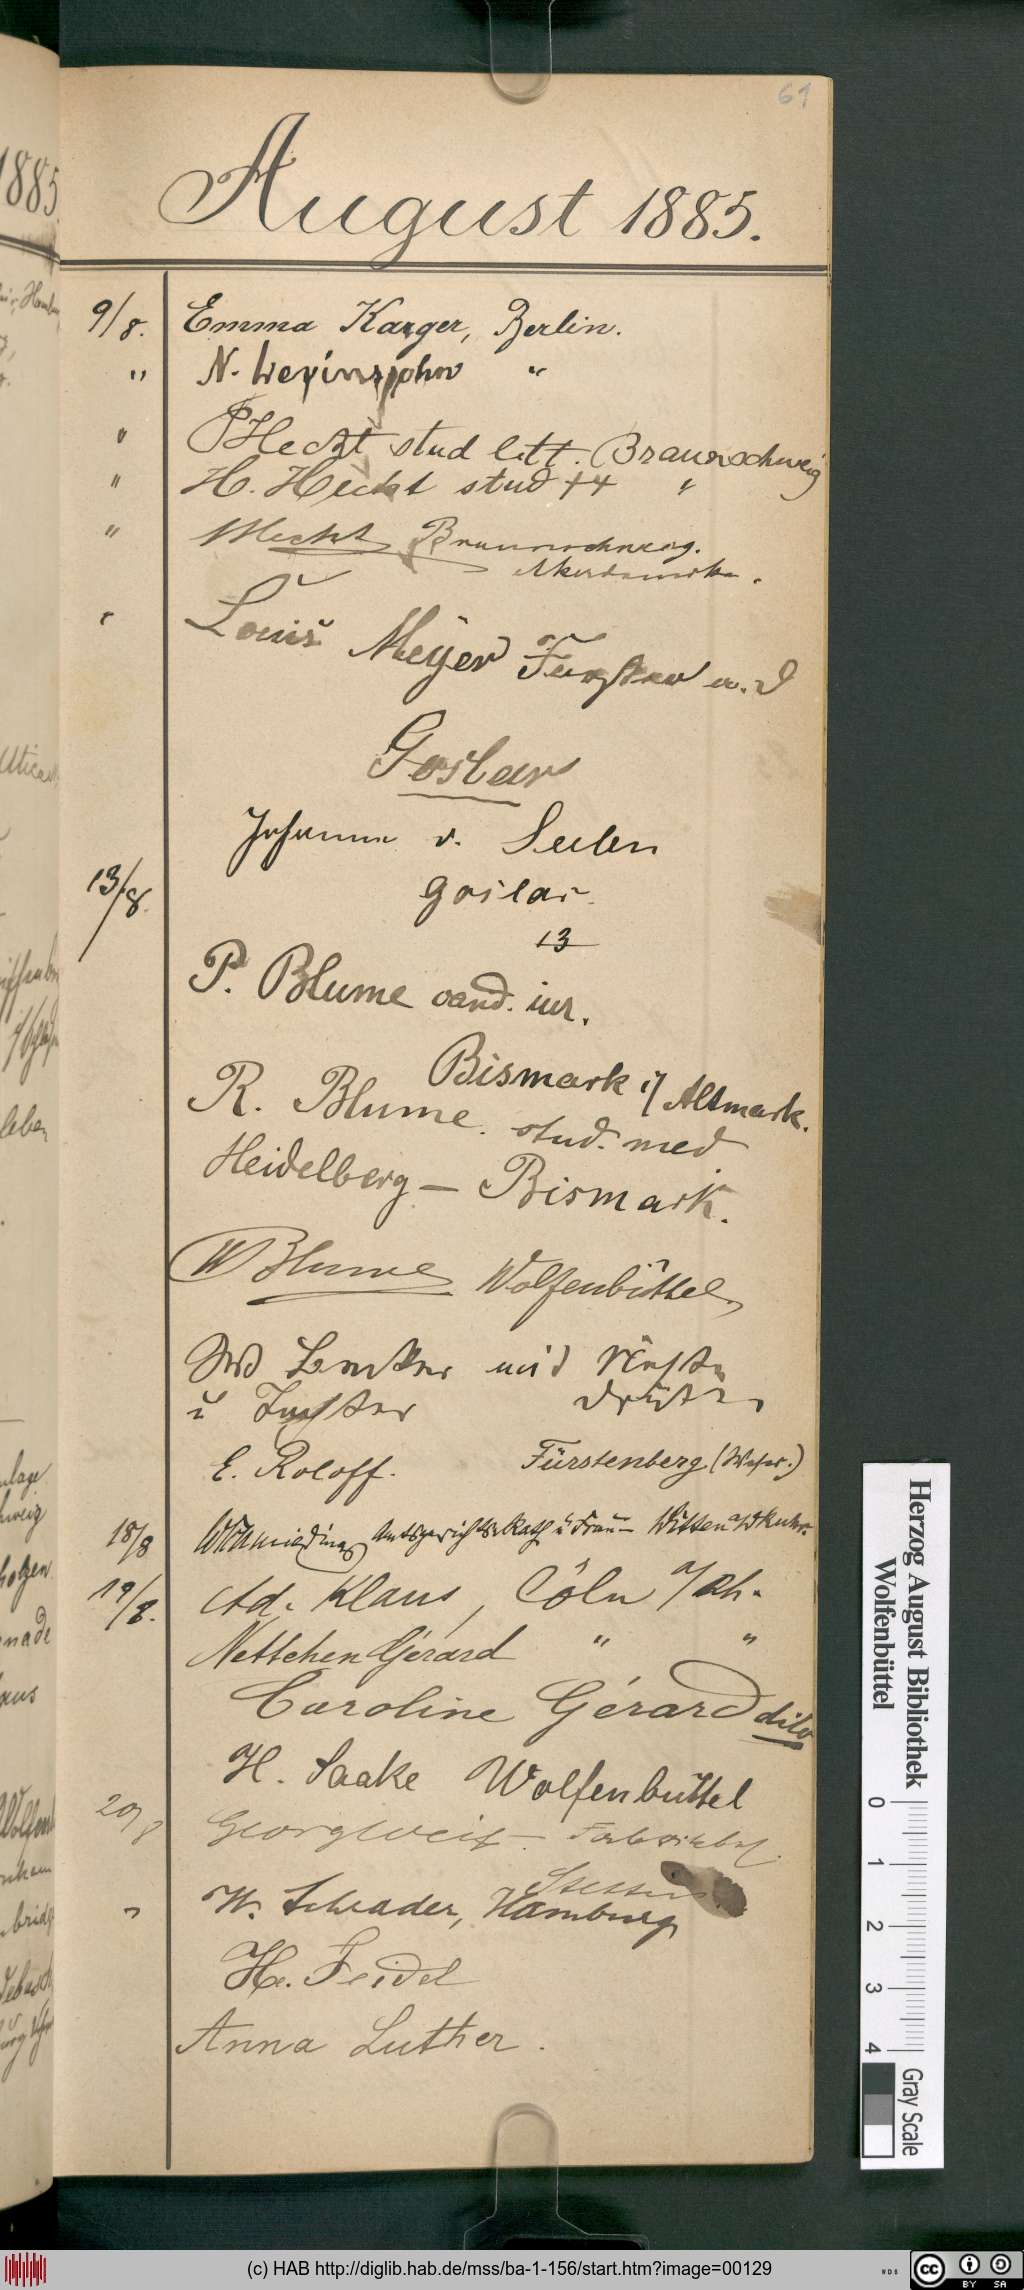 61
August 1885.
9/8. Emma Karger, Berlin.
" N. Levinsohn "
" P Hecht stud litt. Braunschweig
" H. Hecht stud ++ "
" Hecht Braunschweig.
" Louis Meyer Furster a. d
Goslar
Johanna v. Seelen
13/8. Goslar.
13
P. Blume cand. iur.
Bismark i/ Altmark.
R. Blume. stud. med
Heidelberg — Bismark.
W Blume Wolfenbüttel,
und
u
E. Roloff. Fürstenberg (Weser.)
18/8 Amtsgerichts-Rath u Frau - Witten a/d Ruhr.
19/8. Ad. Klaus, Cöln a/Rh.
Nettchen Gérard " "
Caroline Gérard dito
H. Saake Wolfenbüttel
20/8 Georg Weis -
Stettin
" W. Schrader, Hamburg
He. Feidel
Anna Luther.
1885.
Herzog August Bibliothek
Wolfenbüttel
0 1 2 3 4
Gray Scale
(c) HAB http://diglib.hab.de/mss/ba-1-156/start.htm?image=00129
cc BY SA